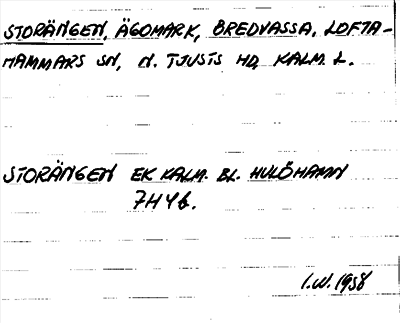 STORÄNGEN, ÄGOMARK, BREDVASSA, LOFTA-
HAMMARS SN, N. TJUSTS HD, KALM. L.
STORÄNGEN EK KALM. BL. HULÖHAMN
7H4b.
I.W. 1958